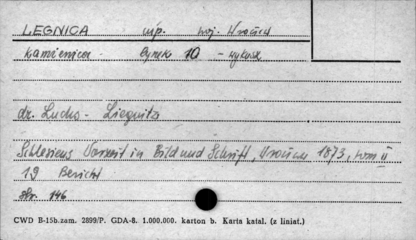 LEGNICA mp. woj. Wrocław
Kamienica - Rynek 10 - wykusz
dr. Luchs - Liegnitz
Schlesiens Vorzeit in Bild und Schrift, Wrocław 1873, tom II
19 Bericht
str. 146
CWD B-15b.zam. 2899/P. GDA-8. 1.000.000. karton b. Karta katal. (z liniat.)